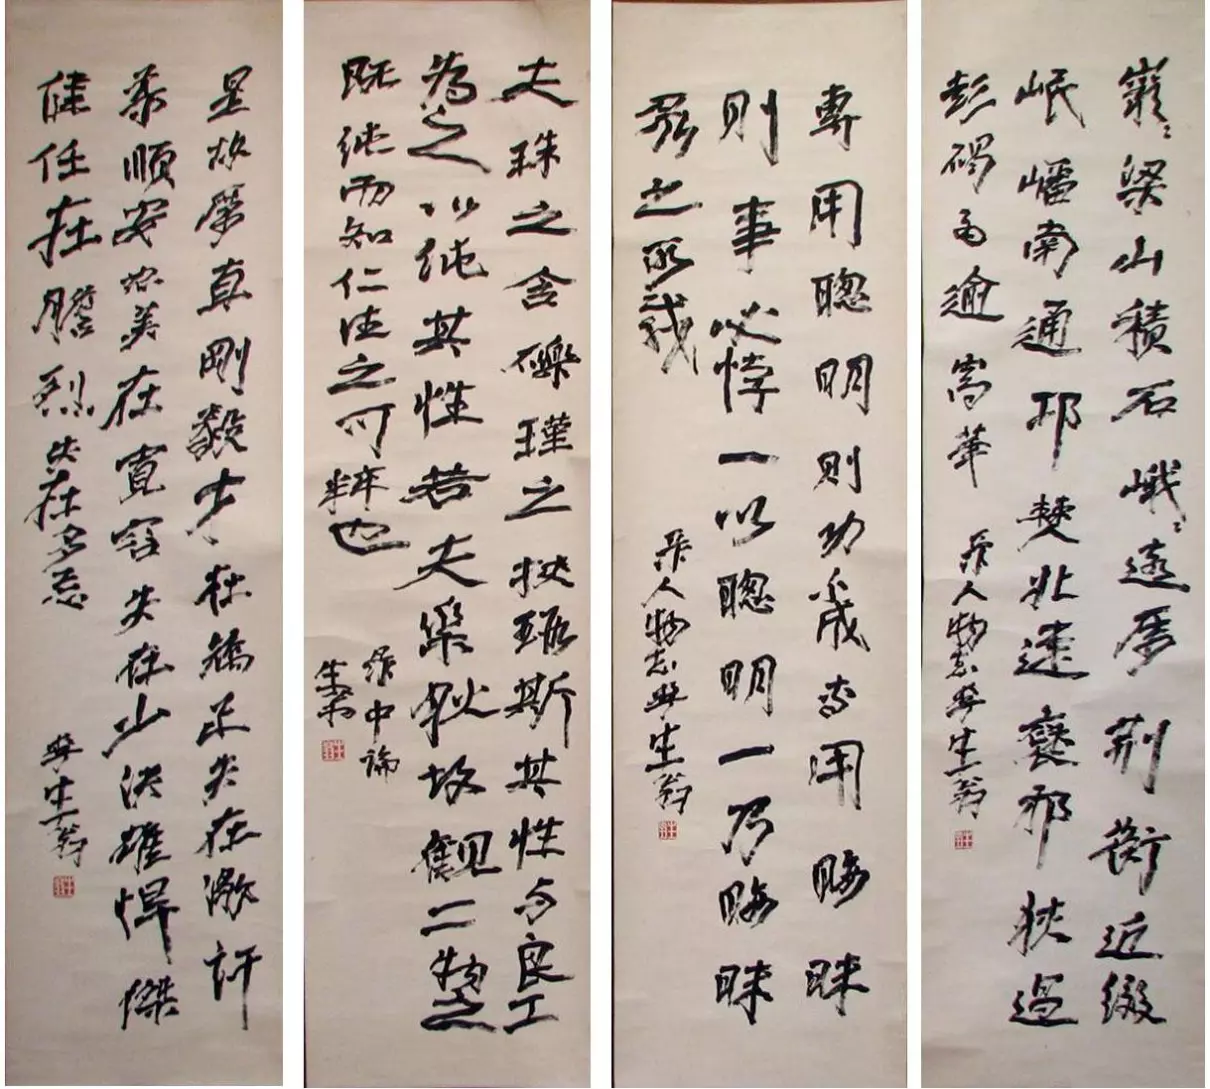 巖巖梁山積石峨峨遠屬荊衡近綴
岷嶓南通邛僰北達褒邪狹過
彭碣高逾嵩華
人物志 生翁
專用聰明則功不成專用晦昧
則事必悖一以聰明一乃晦昧
眾之所載
人物志 生翁
夫珠之含礫瑾之挾瑕斯其性与良工
為之以純其性若夫素然故觀二物之
既純而知仁德之可粹也
中論
生翁
是故厲直剛毅才在矯正失在激訐
柔順安恕美在寬容失在少決雄悍傑
健任在膽烈失在多忌
生翁